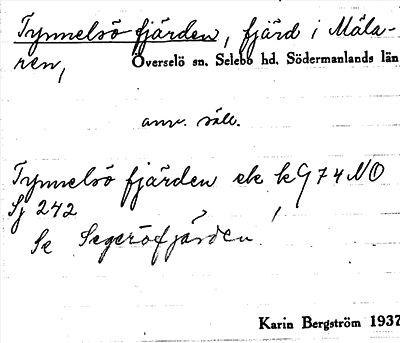 Tynnelsö fjärden, fjärd i Mäla-
ren, Överselö sn. Selebo hd. Södermanlands län
anv. säll.
Tynnelsö fjärden ek k G 74 NO
Sj 242
Se Segeröfjärden!
Karin Bergström 1937